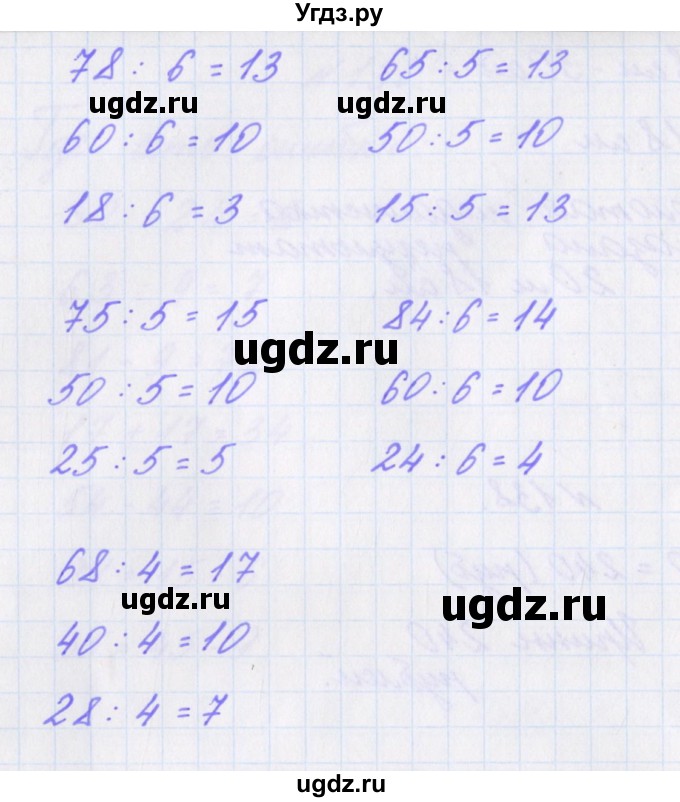 Угдз.ру
78 : 6 = 13 65 : 5 = 13
ugdz.ru ugdz.ru
60 : 6 = 10 50 : 5 = 10
18 : 6 = 3 15 : 5 = 13
75 : 5 = 15 84 : 6 = 14
ugdz.ru
50 : 5 = 10 60 : 6 = 10
25 : 5 = 5 24 : 6 = 4
68 : 4 = 17
ugdz.ru ugdz.ru
40 : 4 = 10
28 : 4 = 7
ugdz.ru